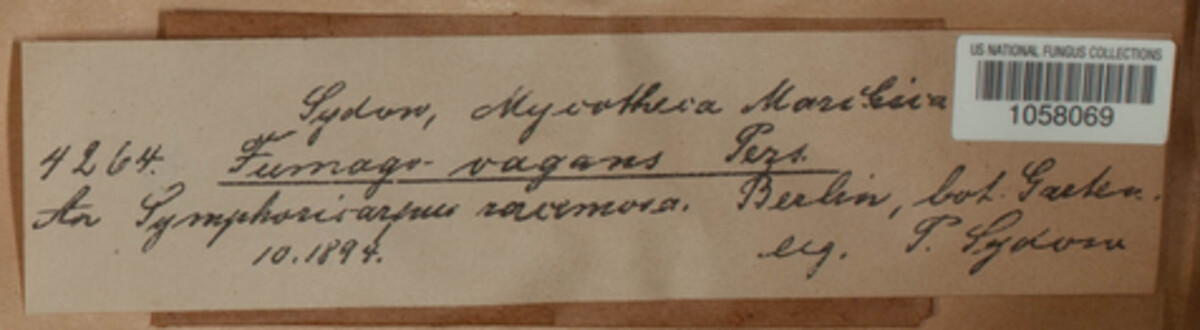 US NATIONAL FUNGUS COLLECTIONS
1058069
Sydow, Mycotheca Marchica
4264. Fumago vagans Pers.
An Symphoricarpus racemosa. Berlin, bot. Garten.
10.1894. leg. P. Sydow